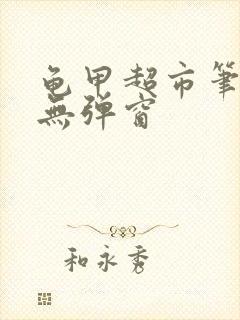 龟甲超市筆
無彈窗
和永秀